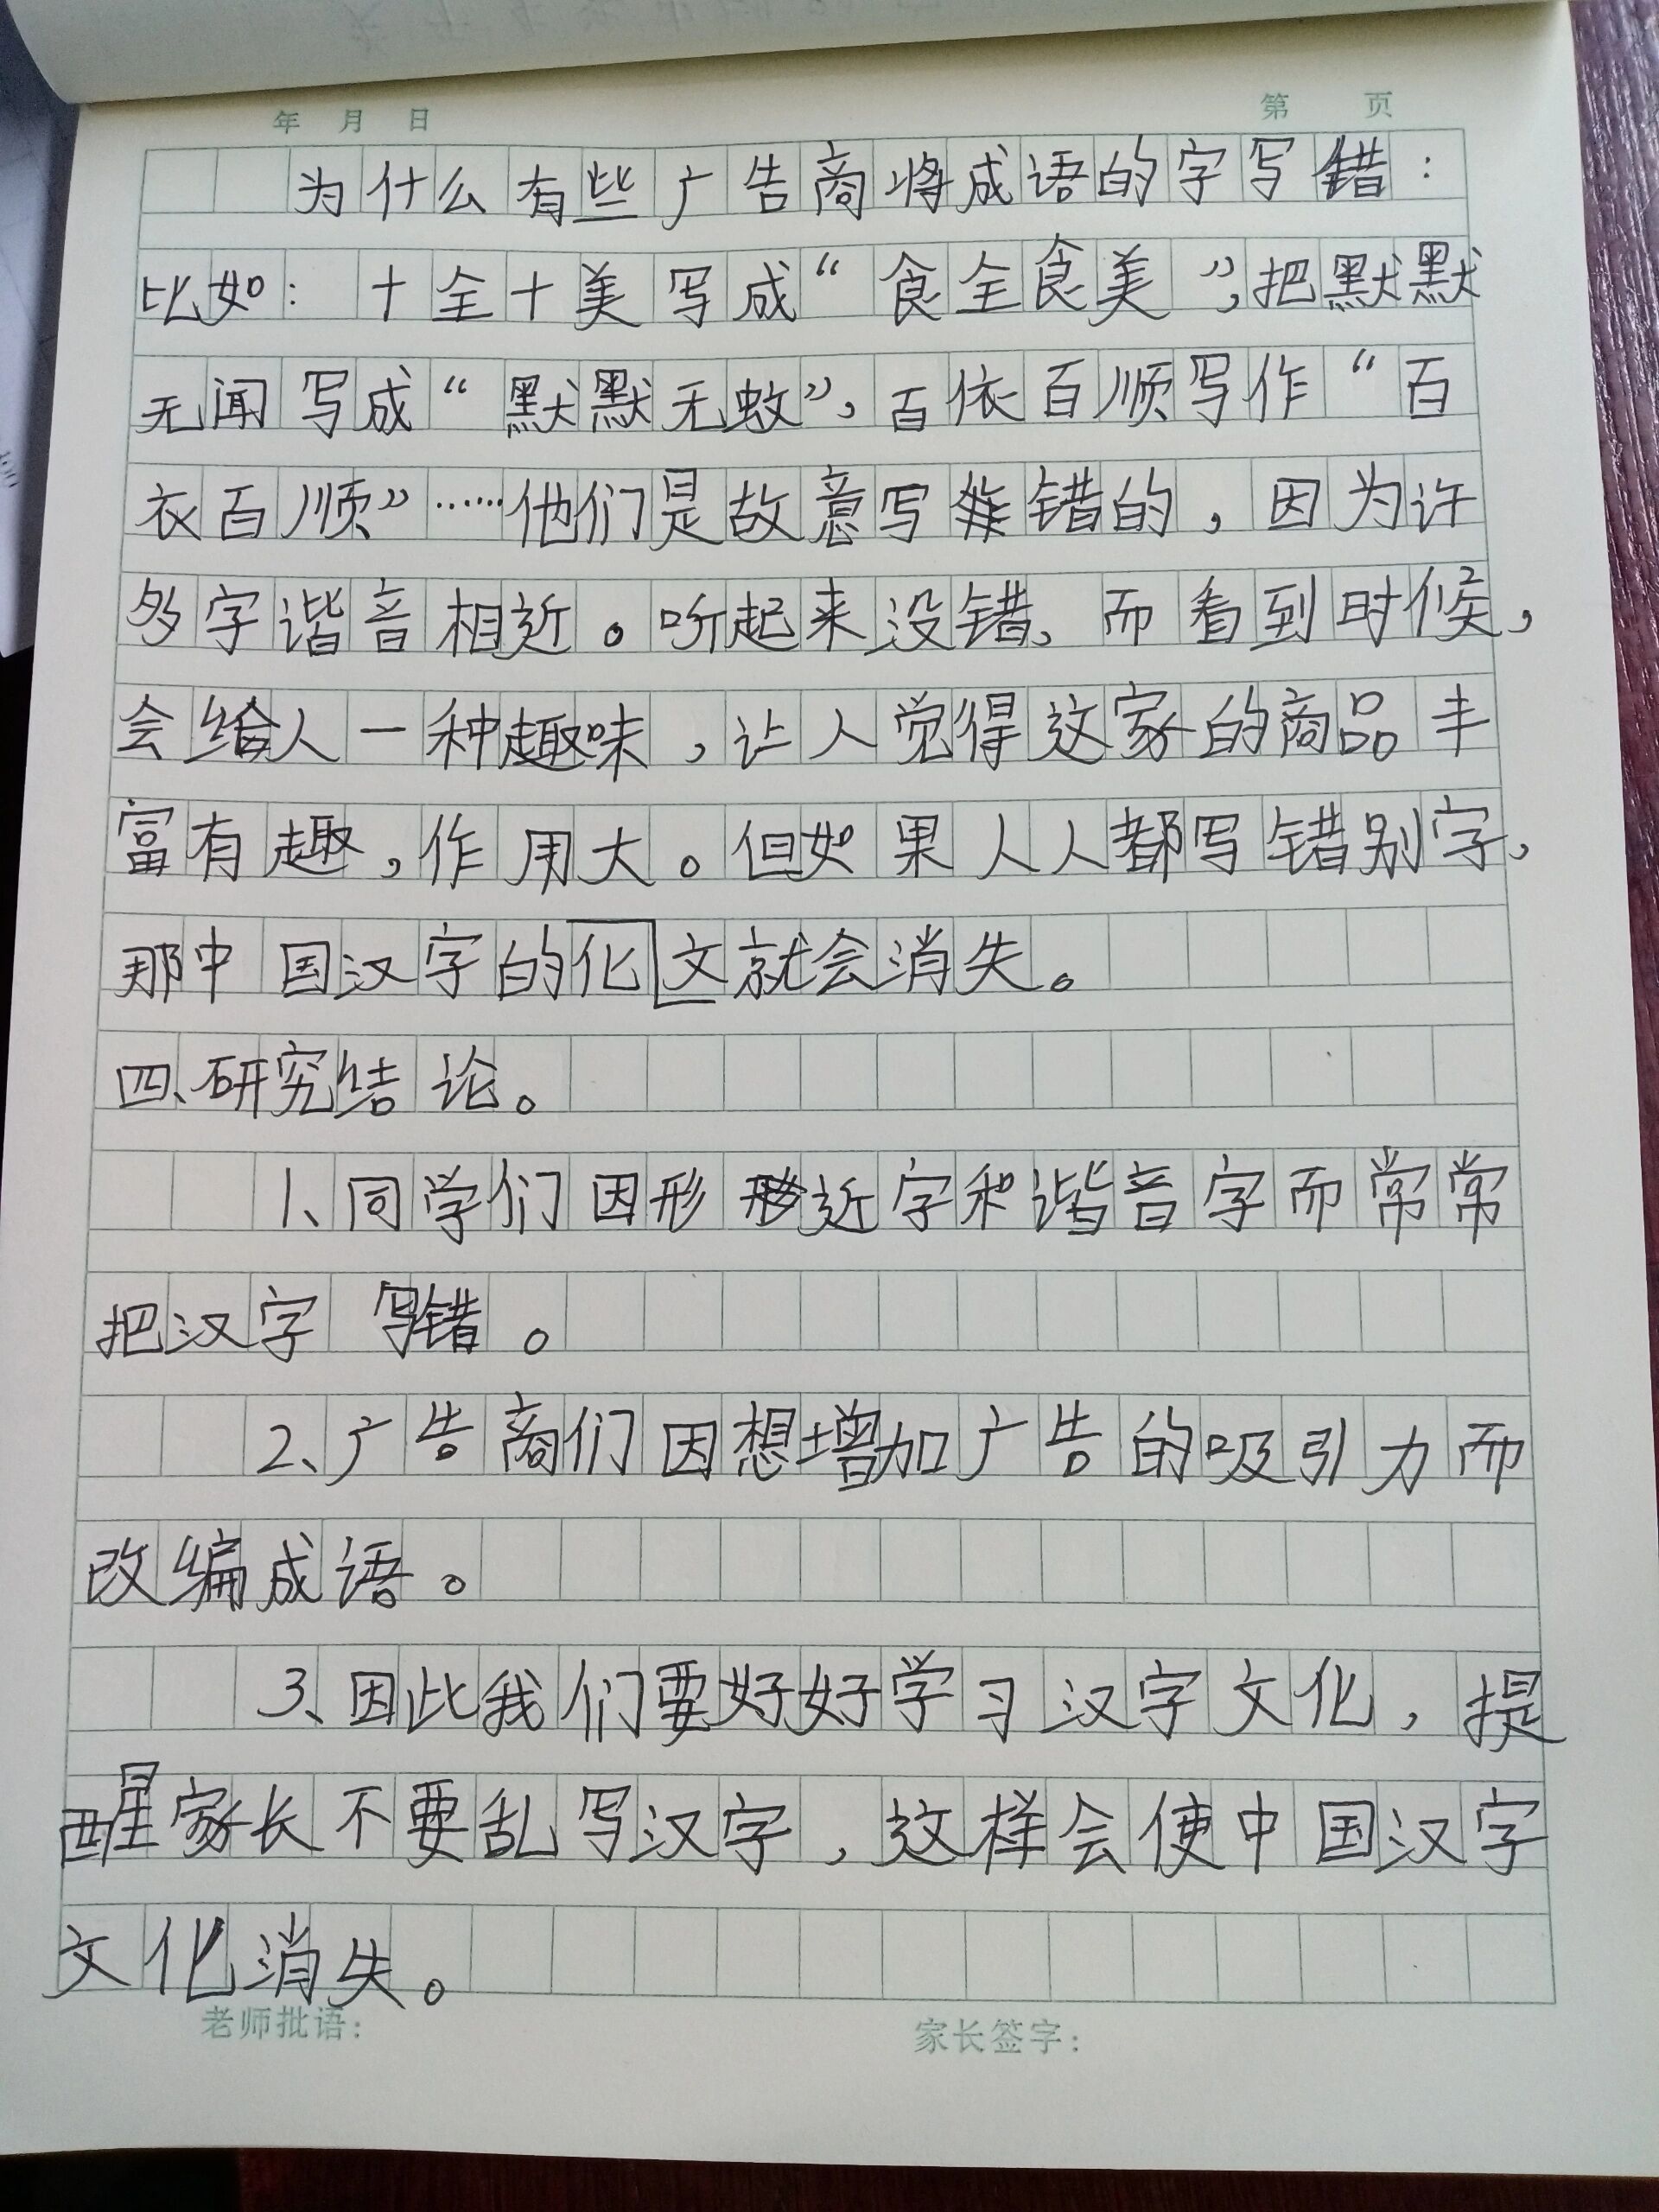 年 月 日 第 页
为什么有些广告商将成语的字写错：
比如：十全十美写成“食全食美”，把默默
无闻写成“默默无蚊”，百依百顺写作“百
衣百顺”……他们是故意写错的，因为许
多字谐音相近。听起来没错，而看到时候，
会给人一种趣味，让人觉得这家的商品丰
富有趣，作用大。但如果人人都写错别字，
那中国汉字的化文就会消失。
四、研究结论。
1、同学们因形近字和谐音字而常常
把汉字写错。
2、广告商们因想增加广告的吸引力而
改编成语。
3、因此我们要好好学习汉字文化，提
醒家长不要乱写汉字，这样会使中国汉字
文化消失。
老师批语： 家长签字：